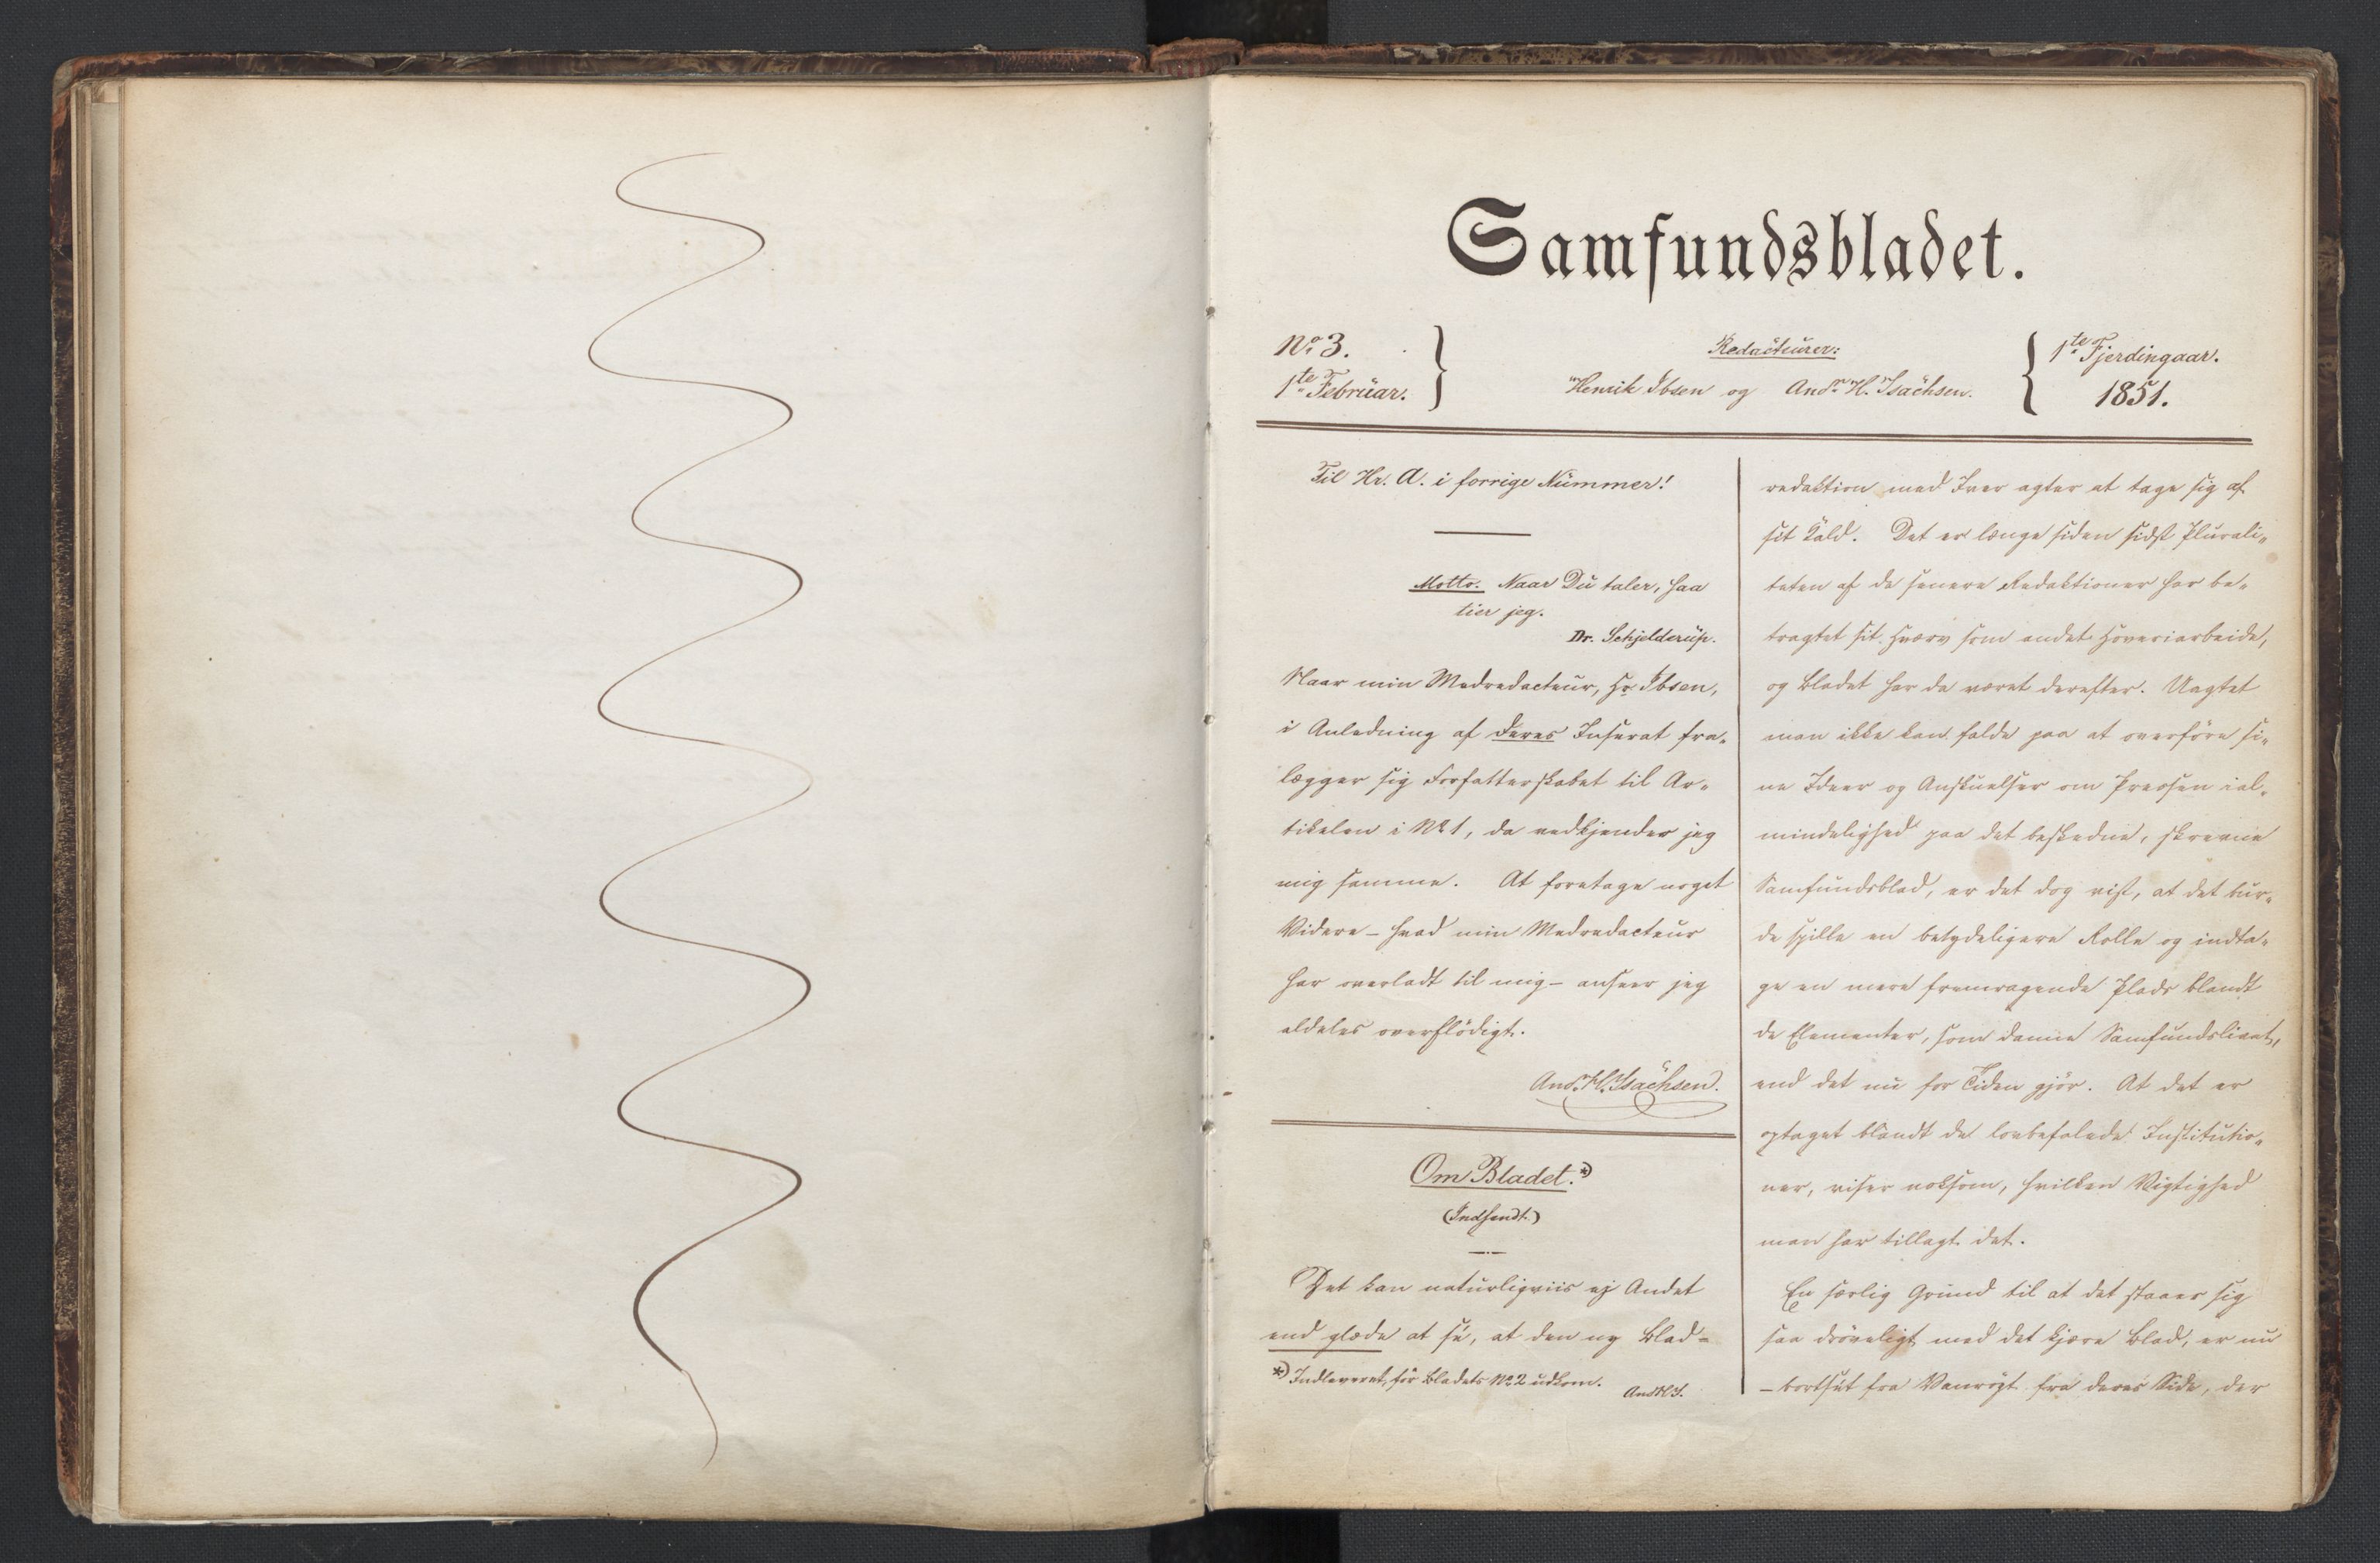 Samfundsbladet.
No 3.
1ste Februar.
Redacteurer:
Henrik Ibsen og Andr. H. Isachsen.
1ste Fjerdingaar.
1851.
Til Hr. A. i forrige Nummer!
Motto. Naar Du taler, saa
tier jeg.
Dr. Schjelderup.
Naar min Medredacteur, Hr. Ibsen,
i Anledning af Deres Inserat fra-
lægger sig Forfatterskabet til Ar-
tikelen i No 1, da vedkjender jeg
mig samme. At foretage noget
Videre – hvad min Medredacteur
har overladt til mig – anseer jeg
aldeles overflødigt.
Andr. H. Isachsen.
Om Bladet.*)
(Indsendt.)
Det kan naturligviis ej Andet
end glæde at se, at den ny Blad-
*) Indleveret, før Bladets No 2 udkom.
And. H. I.
redaktion med Iver agter at tage sig af
sit Kald. Det er længe siden sidst Plurali-
teten af de senere Redaktioner har be-
tragtet sit Hverv som andet Hoveriarbeide,
og Bladet har da været derefter. Uagtet
man ikke kan falde paa at overføre si-
ne Ideer og Anskuelser om Pressen i al-
mindelighed paa det beskedne, skrevne
Samfundsblad, er det dog vist, at det bur-
de spille en betydeligere Rolle og indta-
ge en mere fremragende Plads blandt
de Elementer, som danne Samfundslivet,
end det nu for Tiden gjør. At det er
optaget blandt de lovbefalede Institutio-
ner, viser noksom, hvilken Vigtighed
man har tillagt det.
En særlig Grund til at det staaer sig
saa drøveligt med det kjære Blad, er nu
– bortset fra Vanrøgt fra deres Side, der